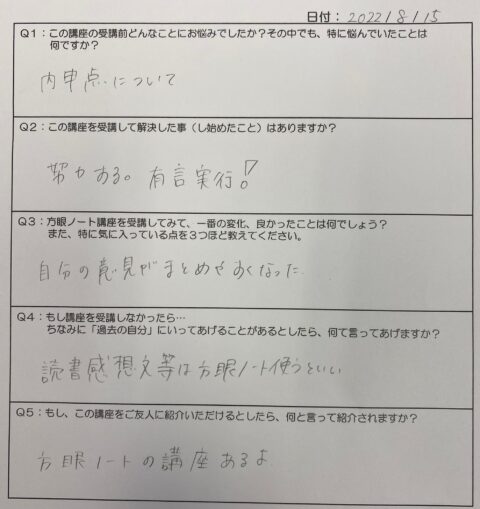 日付：2022/8/15
Q1：この講座の受講前どんなことにお悩みでしたか？その中でも、特に悩んでいたことは
何ですか？
内申点について
Q2：この講座を受講して解決した事（し始めたこと）はありますか？
努力する。有言実行！
Q3：方眼ノート講座を受講してみて、一番の変化、良かったことは何でしょう？
また、特に気に入っている点を３つほど教えてください。
自分の意見がまとめやすくなった
Q4：もし講座を受講しなかったら…
ちなみに「過去の自分」にいってあげることがあるとしたら、何て言ってあげますか？
読書感想文等は方眼ノート使うといい
Q5：もし、この講座をご友人に紹介いただけるとしたら、何と言って紹介されますか？
方眼ノートの講座あるよ